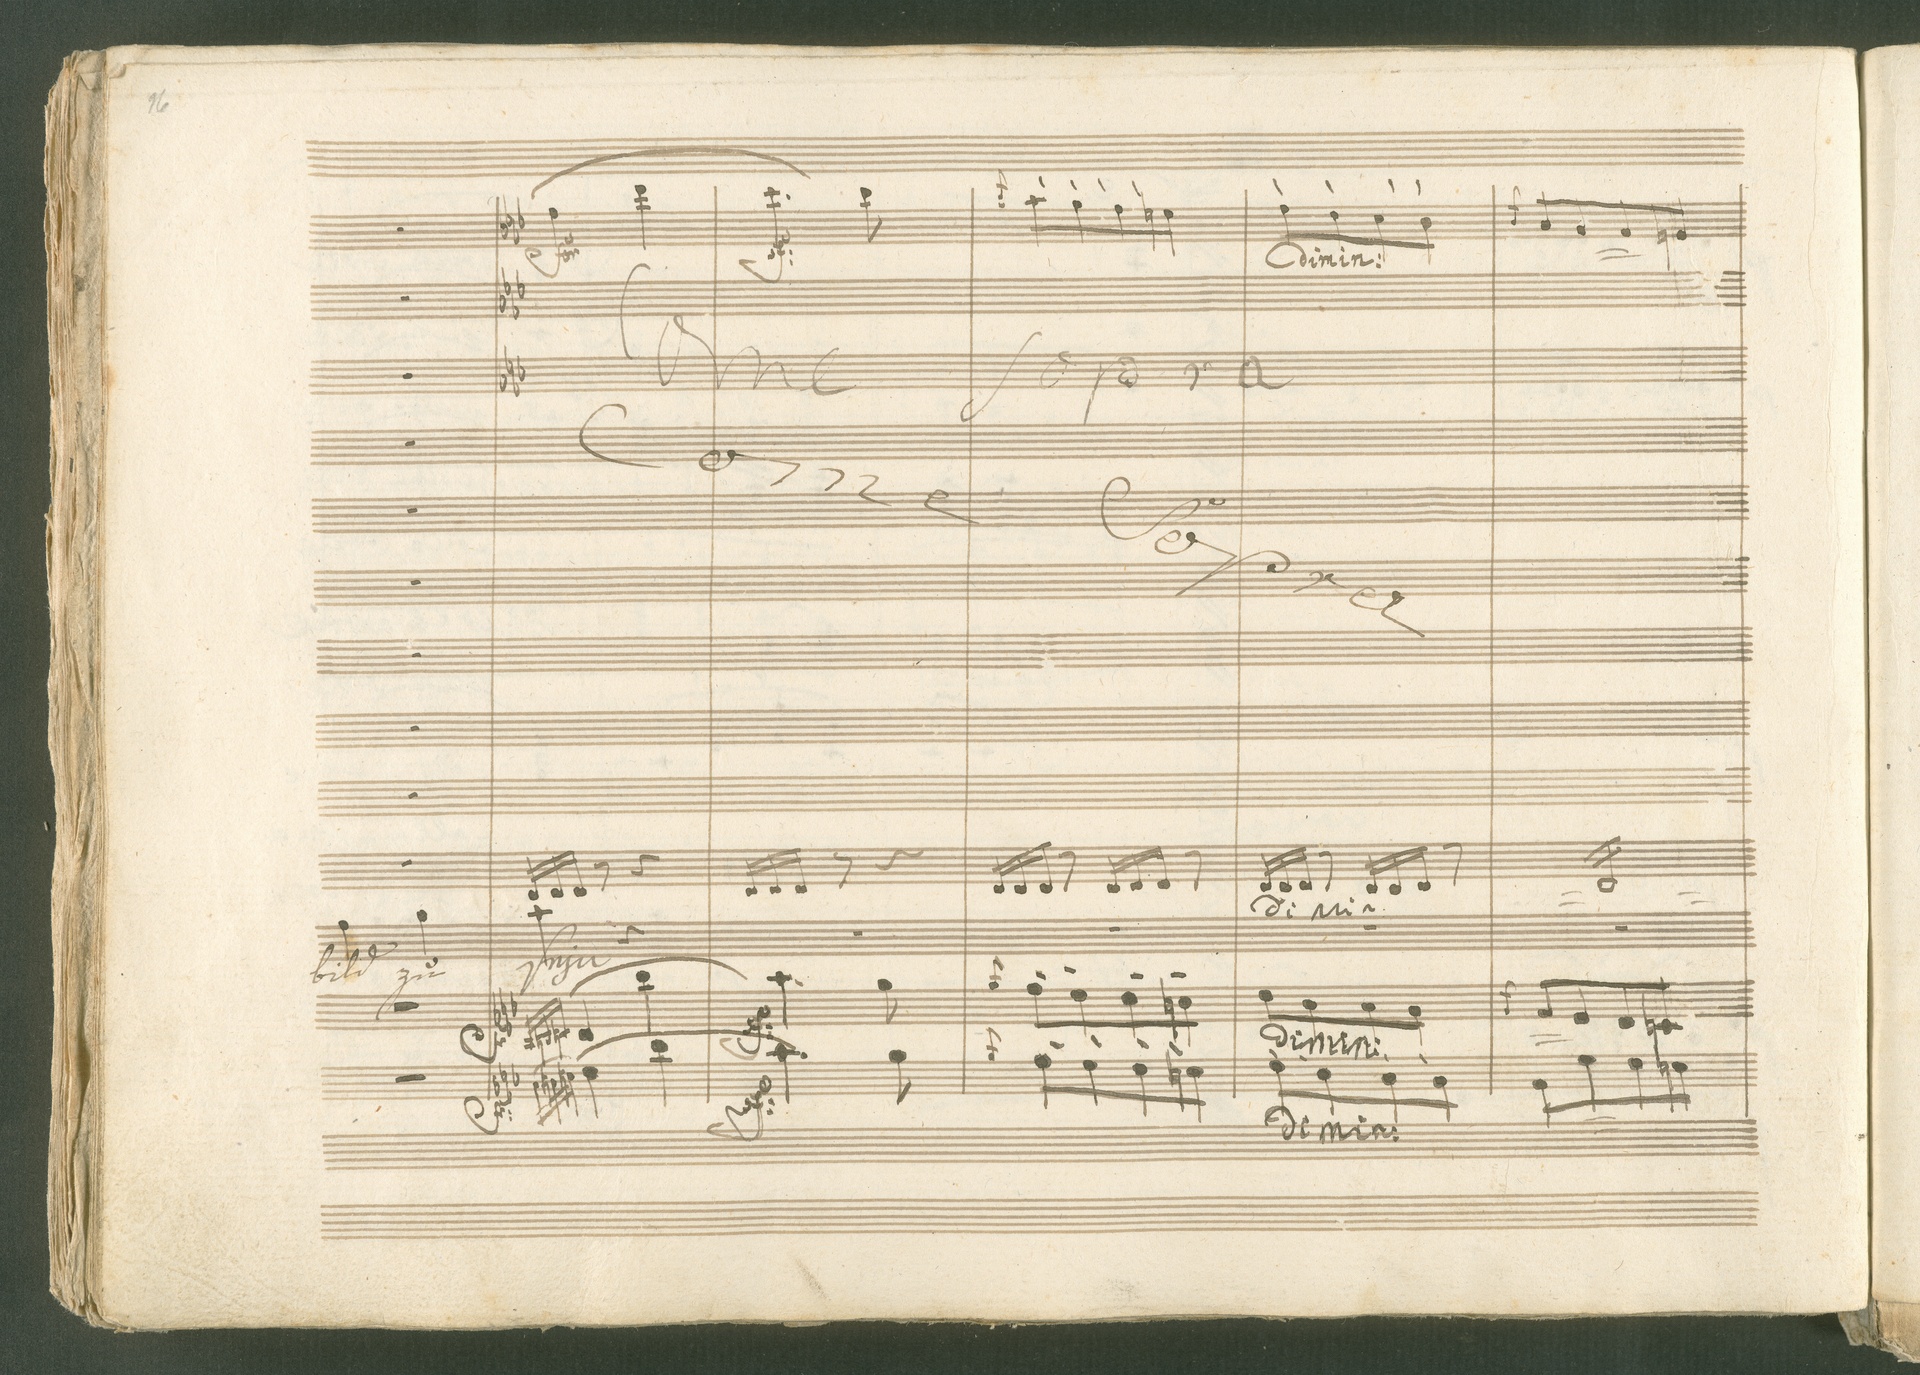 96
dimin:
Come sopra
Come Sopra
dimin
bild zu
dimin:
dimin: